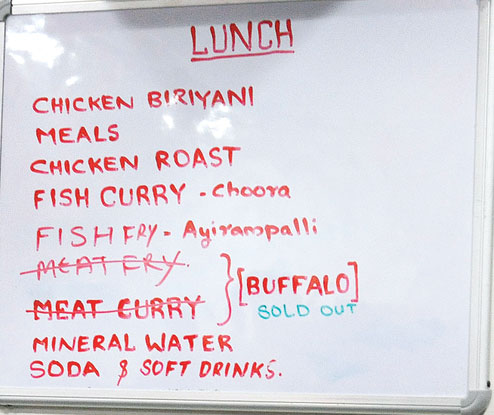 LUNCH
CHICKEN BIRIYANI
MEALS
CHICKEN ROAST
FISH CURRY - Choora
FISH FRY - Ayirampalli
MEAT FRY
MEAT CURRY
[BUFFALO]
SOLD OUT
MINERAL WATER
SODA & SOFT DRINKS.